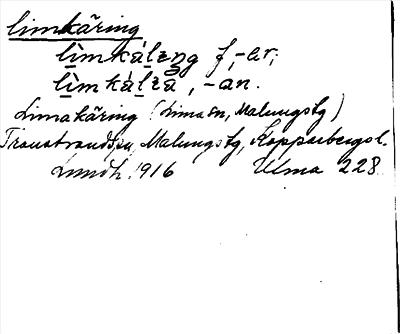 limkäring
lìmkáləng f, -ar;
lìmkálzå, -an.
Limakäring (Lima sn, Malungs tg)
Transtrands sn, Malungs tg, Kopparbergs l.
Lundh. 1916 Ulma 228.